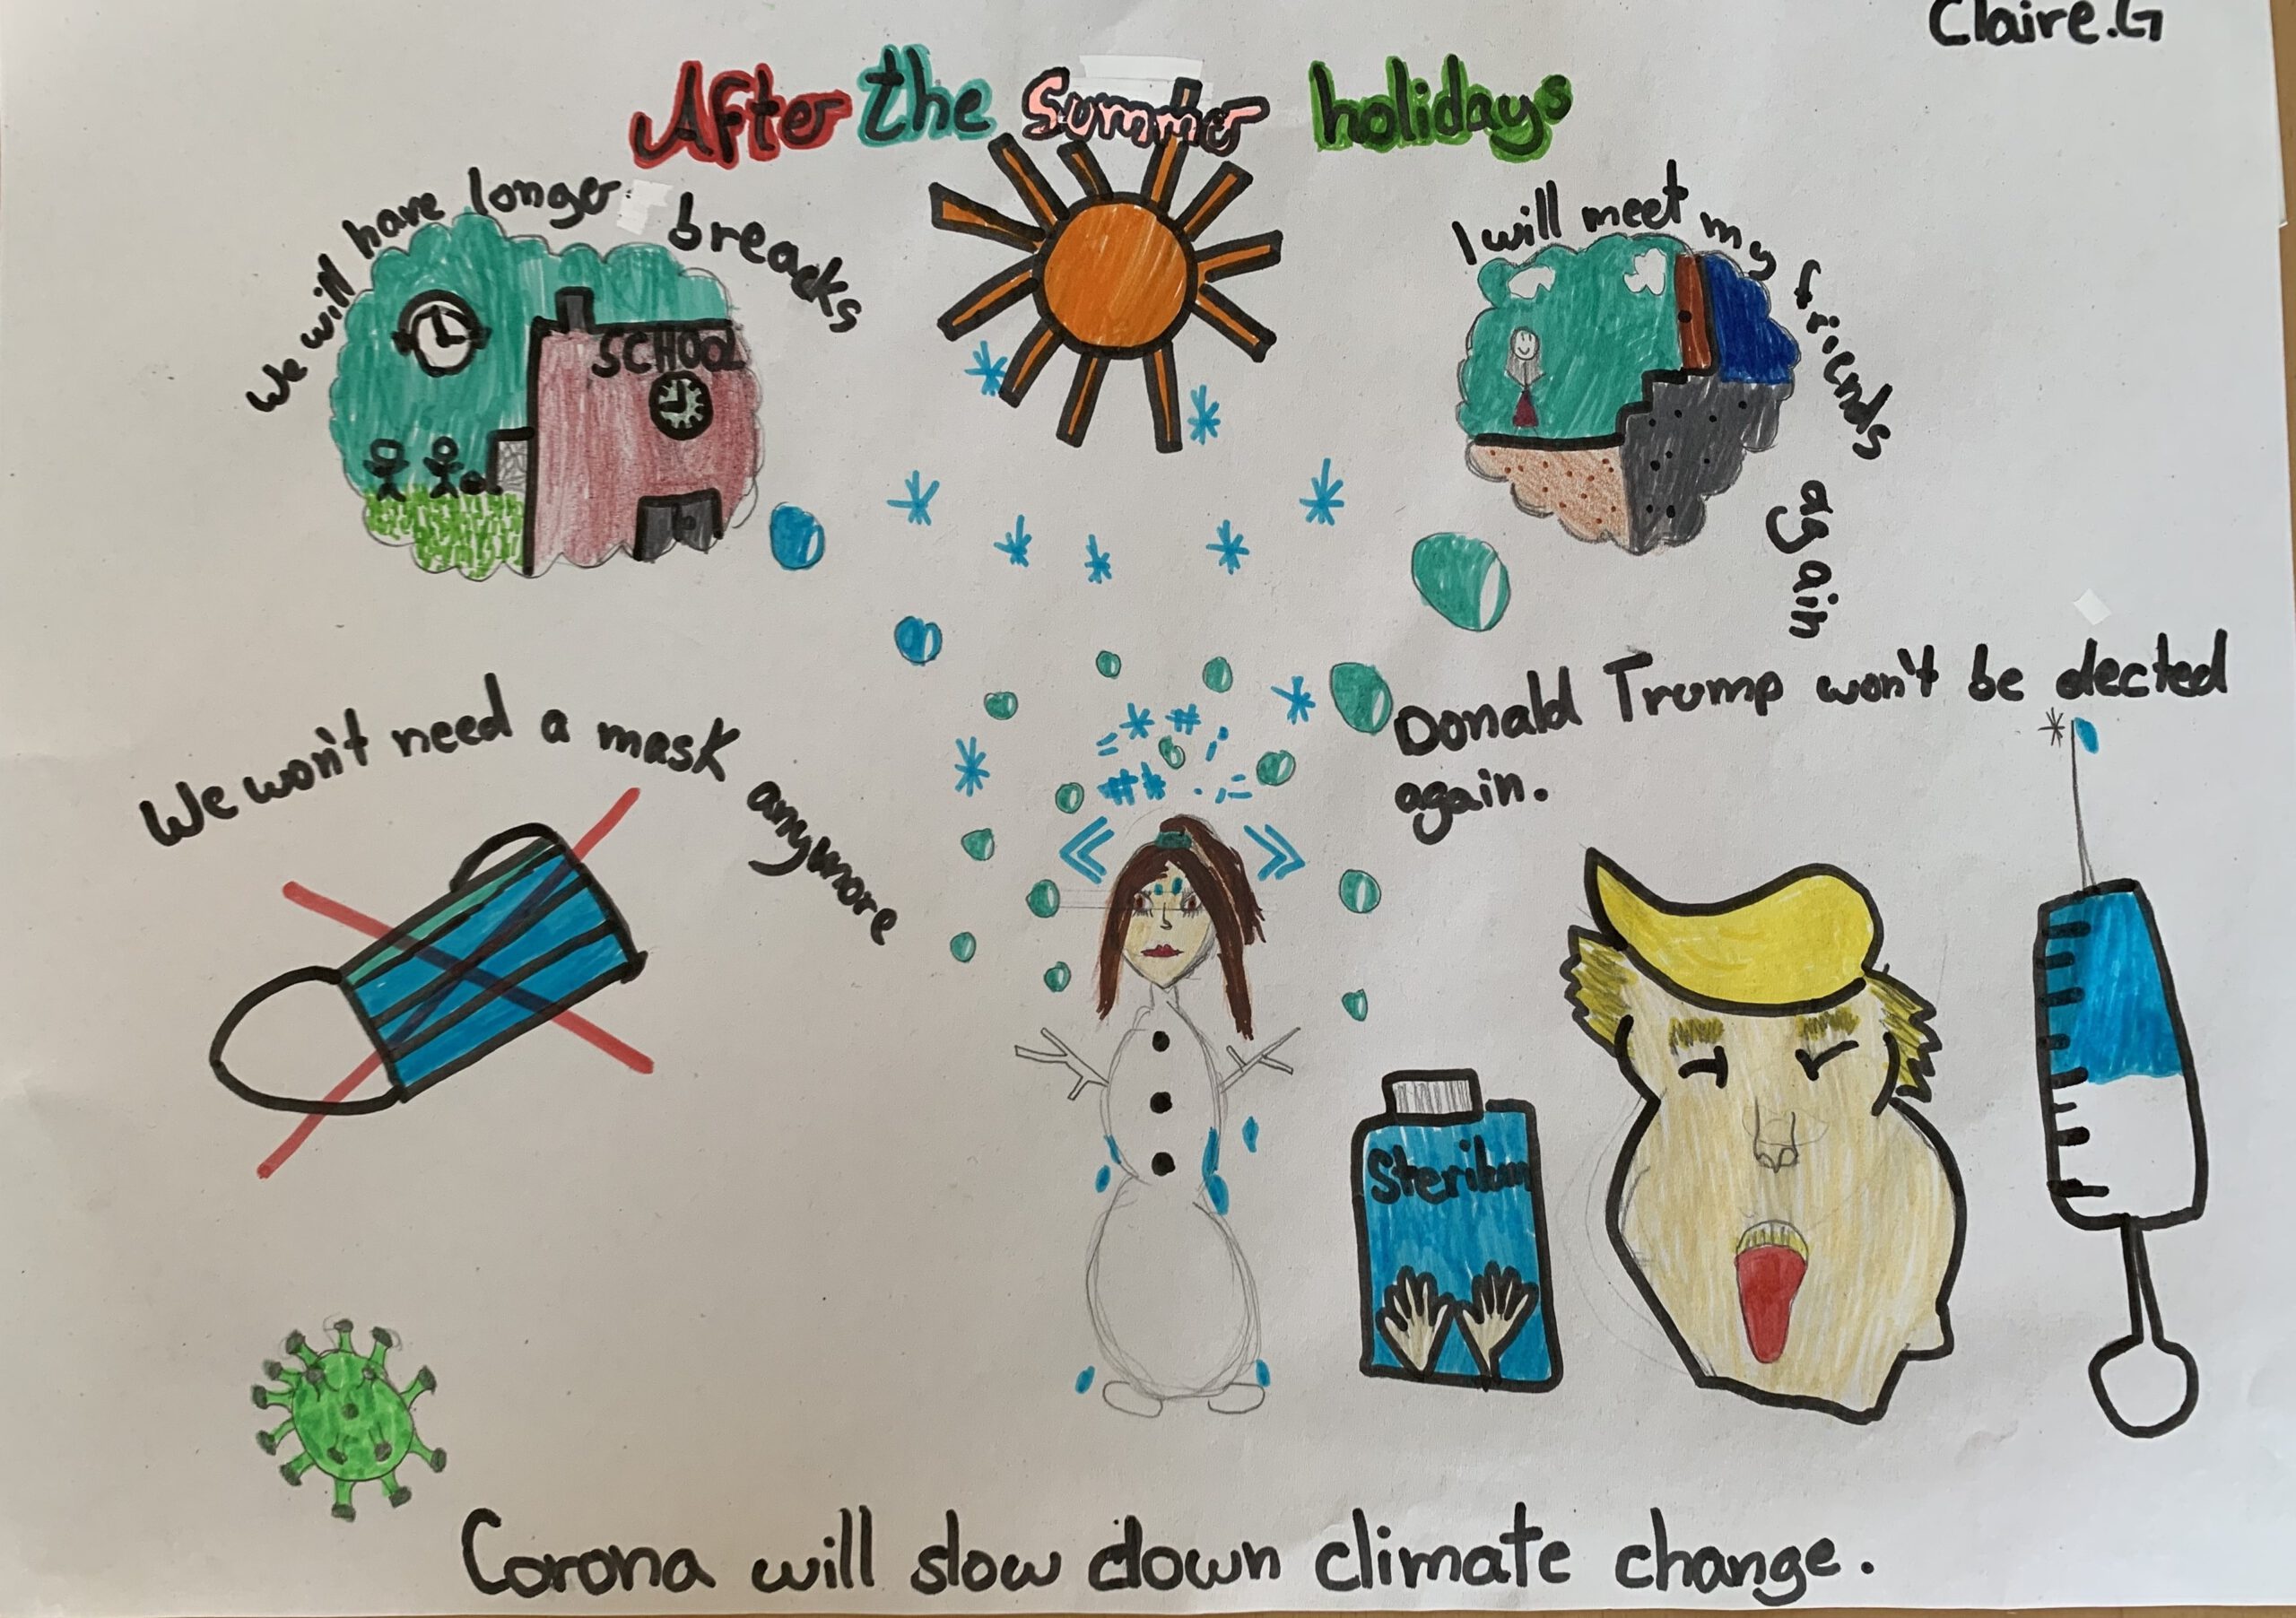 Claire.G
After the Summer holidays
We will have longer breacks
SCHOOL
I will meet my friends again
We won't need a mask anymore
Donald Trump won't be elected
again.
Sterilum
Corona will slow down climate change.